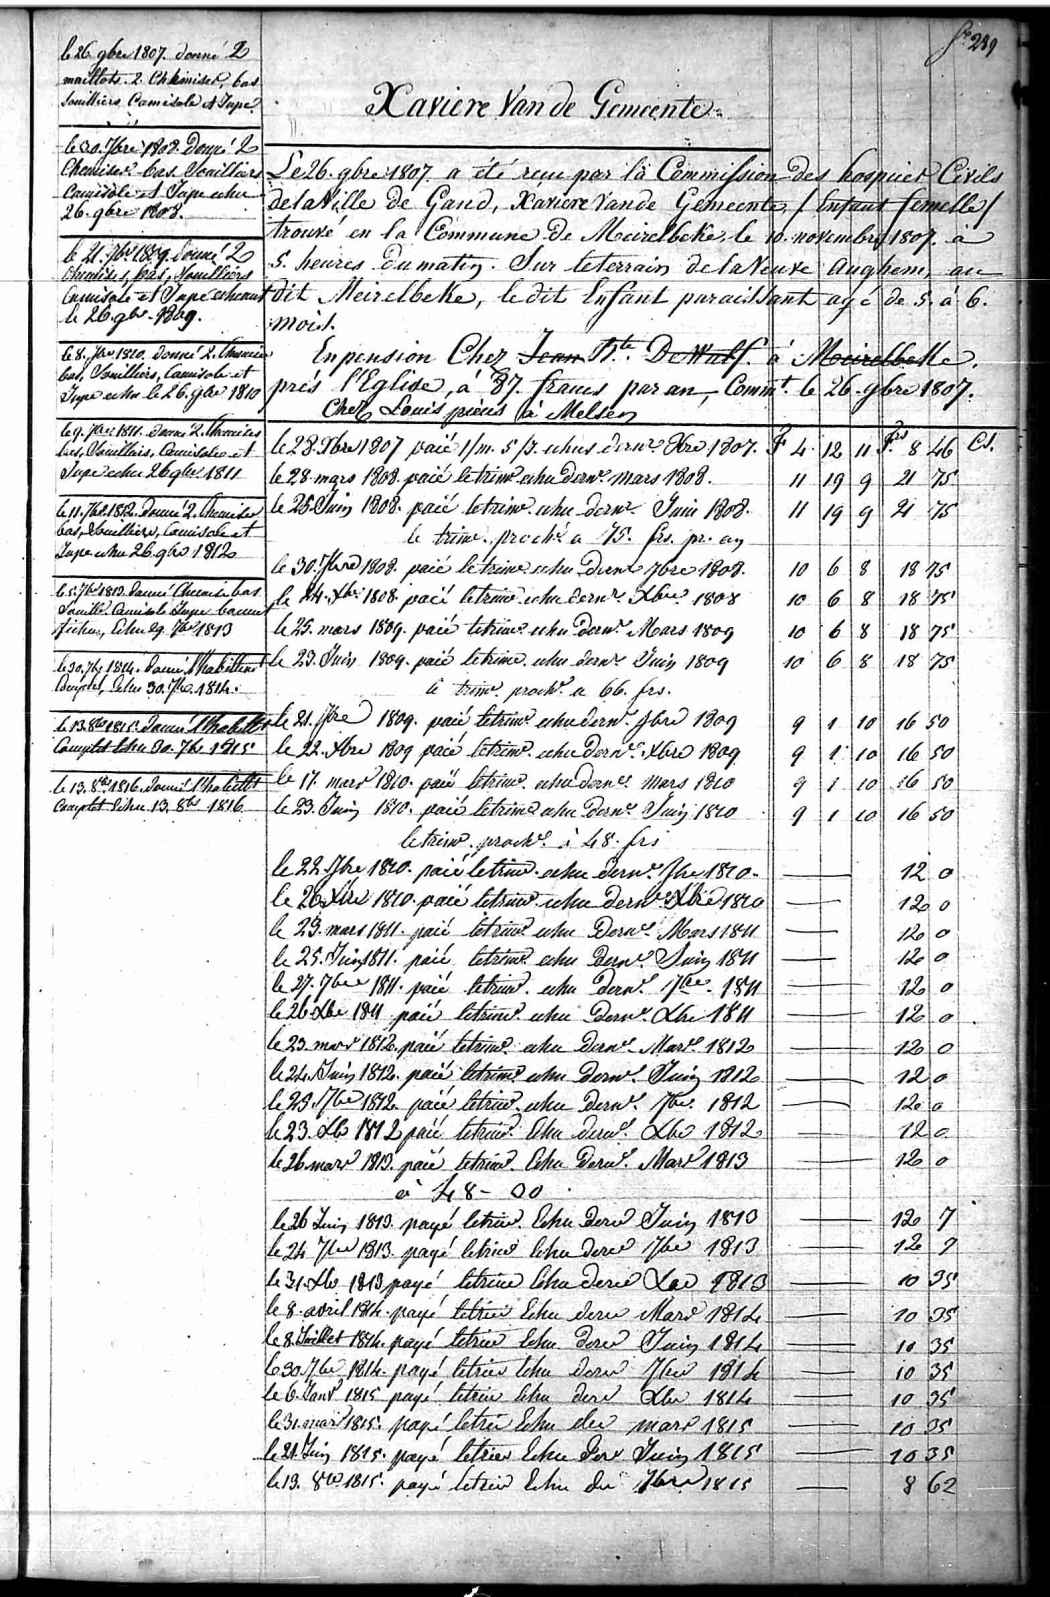 fo. 289
le 26 9bre 1807. donné 2
maillots. 2. Chemises, bas
Souilliers Camisole et Jupe.
le 20. 7bre 1808. Donné 2
Chemises bas. Souilliers
Camisole et Jupe echu
26. 9bre 1808.
le 21. 7bre 1809. donné 2
Chemises, bas, Souilliers
Camisole et Jupe echeant
le 26. 9bre. 1809.
le 8. 7bre 1810. donné 2. Chemises
bas, Souilliers, Camisole et
Jupe echu le 26. 9bre 1810
le 9. 7bre 1811. donné 2. Chemises
bas, Souilliers, Camisole et
Jupe echu 26 9bre 1811
le 11. 7bre 1812. donné 2. Chemises
bas, Souilliers, Camisole et
Jupe echu 26 9bre 1812
le 5. 7bre 1813. Donné Chemise bas
Souillé Camisole Jupe bonnet
fichu, Echu 29. 7bre 1813
le 30. 7bre 1814. Donné l'habillemt
Complet, Echu 30. 7bre 1814.
le 13. 8bre 1815. Donné l'habillt
Complet Echu 30. 7bre 1815
le 13. 8bre 1816. donné l'habillt
Complet Echu 13. 8bre 1816
Xaviere Van de Gemeente
Le 26. 9bre 1807. a été reçu par la Commission des hospices Civils
de la Ville de Gand, Xaviere Vande Gemeente / Enfant femelle /
trouvé en la Commune de Meirelbeke, le 10. novembre 1807. à
5. heures du matin. Sur le terrain de la Veuve Aughem, au
dit Meirelbeke, le dit Enfant paraissant agé de 5. à 6.
mois.
En pension Chez Jean Bte. DeWulf. à Meirelbeke.
prés l'Eglise, à 87. francs par an, Commt. le 26. 9bre 1807.
Chez Louis à Melsen
le 28. Xbre 1807 paié 1/m. 5/j. echus dernr. Xbre 1807. F 4. 12 11 Frs. 8 46 Cs.
le 28. mars 1808. paié le trimr. echu dernr. mars 1808. 11 19 9 21 75
le 25. Juin 1808. paié le trimr. echu dernr. Juin 1808. 11 19 9 21 75
le trimr. prochr. a 75. frs. pr. an
le 30. 7bre 1808. paié le trimr. echu dernr 7bre 1808. 10 6 8 18 75
le 24. Xbre 1808 paié le trimr. echu dernr. Xbre. 1808 10 6 8 18 75
le 25. mars 1809. paié le trimr. echu dernr. Mars 1809 10 6 8 18 75
le 23. Juin 1809. paié le trimr. echu dernr Juin 1809 10 6 8 18 75
le trimr. prochr. a 66. frs.
le 21. 7bre 1809. paié le trimr. echu dernr. 7bre 1809 9 1 10 16 50
le 22. Xbre 1809 paié le trimr. echu dernr. Xbre 1809 9 1 10 16 50
le 17. mars 1810. paié le trimr. echu dernr. mars 1810 9 1 10 16 50
le 23. Juin 1810. paié le trimr echu dernr. Juin 1810 9 1 10 16 50
le trimr. prochr. à 48. frs
le 22. 7bre 1810. paié le trimr. echu dernr. 7bre 1810. 12 0
le 26 Xbre 1810. paié le trimr. echu dernr. Xbre 1810 12 0
le 23. mars 1811. paié le trimr. echu Dernr. Mars 1811 12 0
le 25. Juin 1811. paié le trimr. echu Dernr. Juin 1811 12 0
le 27. 7bre 1811. paié le trimr. echu dernr. 7bre. 1811 12 0
le 26. Xbre 1811 paié le trimr. echu Dernr. Xbre 1811 12 0
le 23. mars 1812. paié le trimr. echu Dernr. Mars. 1812 12 0
le 24. Juin 1812. paié le trimr. echu Dernr. Juin 1812 12 0
le 23. 7bre 1812. paié le trimr. echu Dernr. 7bre. 1812 12 0
le 23. Xbre 1812 paié le trimr. Echu dernr. Xbre 1812 12 0
le 26 mars 1813. paié le trimr. Echu dernr. Mars 1813 12 0
à 48 - 00
le 26 Juin 1813. payé le trimr. Echu derer Juin 1813 12 7
le 24 7bre 1813. payé le trimr Echu derer 7bre 1813 12 7
le 31. Xbre 1813 payé le trimr Echu derer Xbre 1813 10 35
le 8. avril 1814. payé le trimr Echu derer Mars 1814 10 35
le 8. Juillet 1814. payé le trimr Echu derer Juin 1814 10 35
le 30. 7bre 1814. payé le trimr Echu derer 7bre 1814 10 35
le 6. Janvr 1815 payé le trimr Echu derer Xbre 1814 10 35
le 31. mars 1815. payé le trimr Echu der mars 1815 10 35
le 21. Juin 1815. payé le trimr Echu der Juin 1815 10 35
le 13. 8bre 1815. payé le trimr Echu der 7bre 1815 8 62